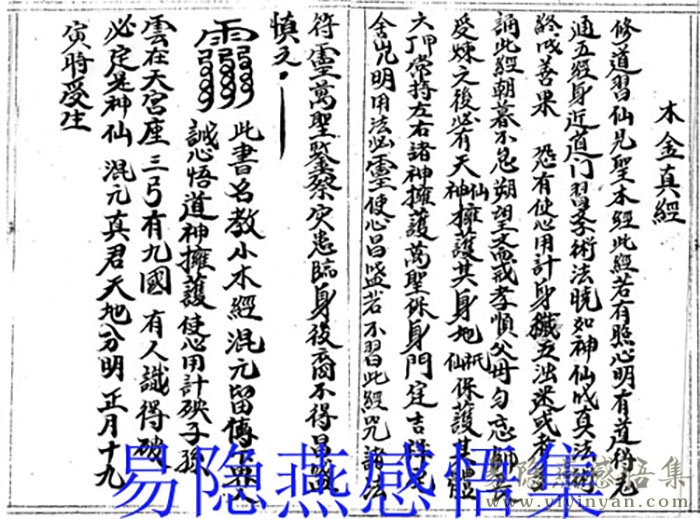 木金真經
修道習仙見聖木經此經若有照心明有道併九
通五經身近道门習學術法晓如神仙成真法術
終成善果 恐有使心用計身
誦此經朝暮不怠朔望齋戒孝順父母勿忘師
受煉之後必有天神仙擁護其身地仙祇保護其體
六甲常持左右諸神擁護萬聖保身門定吉祥
含光明用法必靈使心昌盛若不習此經咒諸法
符靈萬聖鑒察灾患臨身後裔不得昌盛
慎之
此書名教小木經混元留傳
誠心悟道神擁護使心用計殃子孫
雲在天宫座三弓有九國有人識得破
必定是神仙混元真君天地分明正月十九
寅時受生
易隐燕感悟集
易隐燕感悟集
www.yiyinyan.com